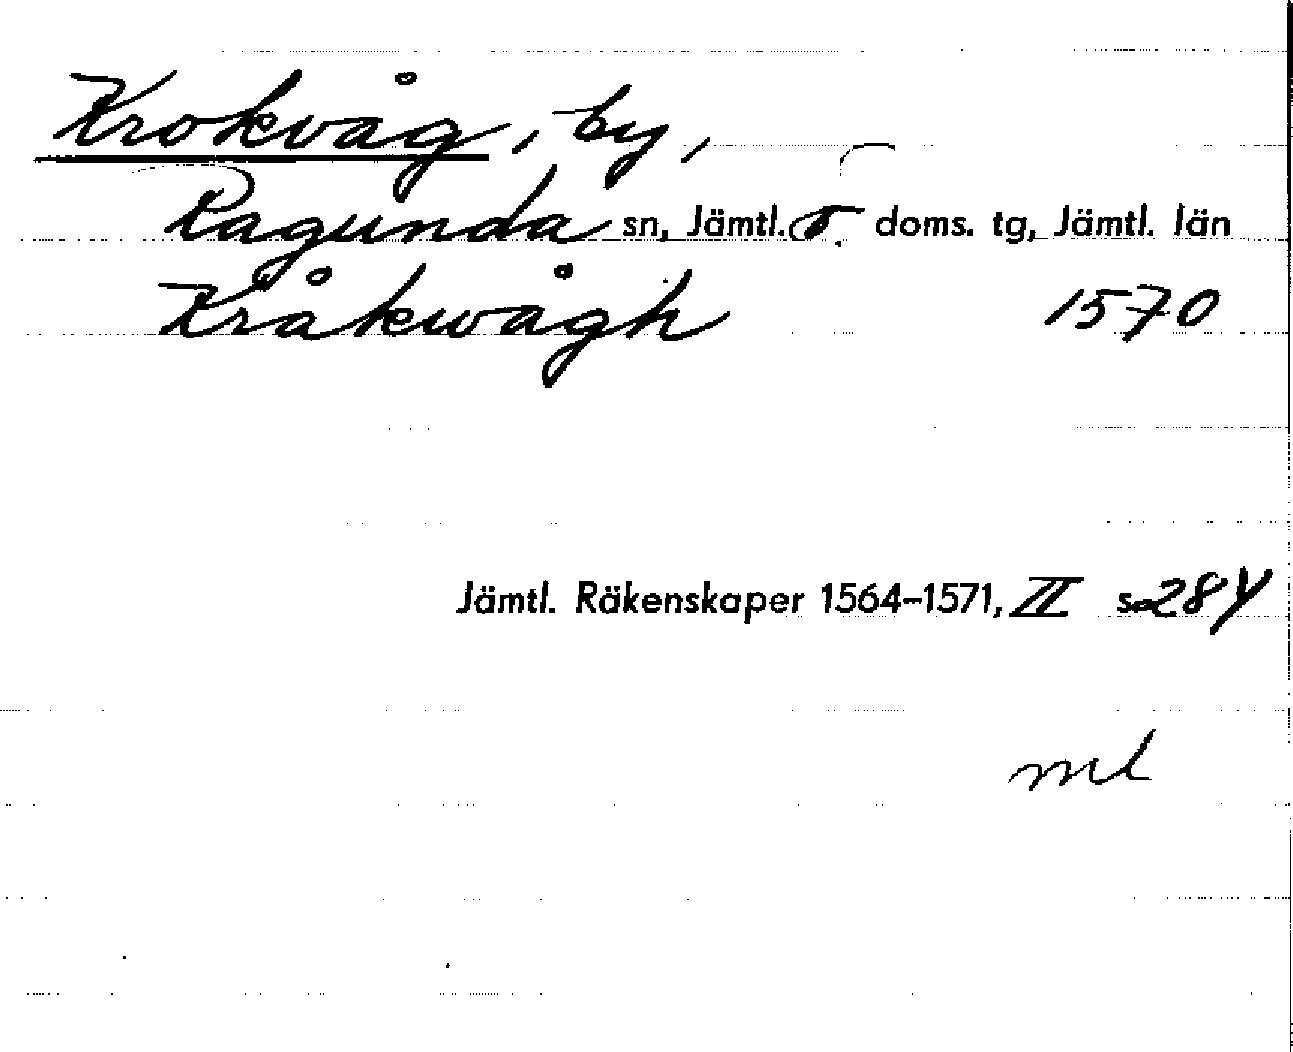 Krokvåg, by,
Ragunda sn, Jämtl. ö. doms. tg, Jämtl. län
Kråkwågh 1570
Jämtl. Räkenskaper 1564–1571, II s. 284